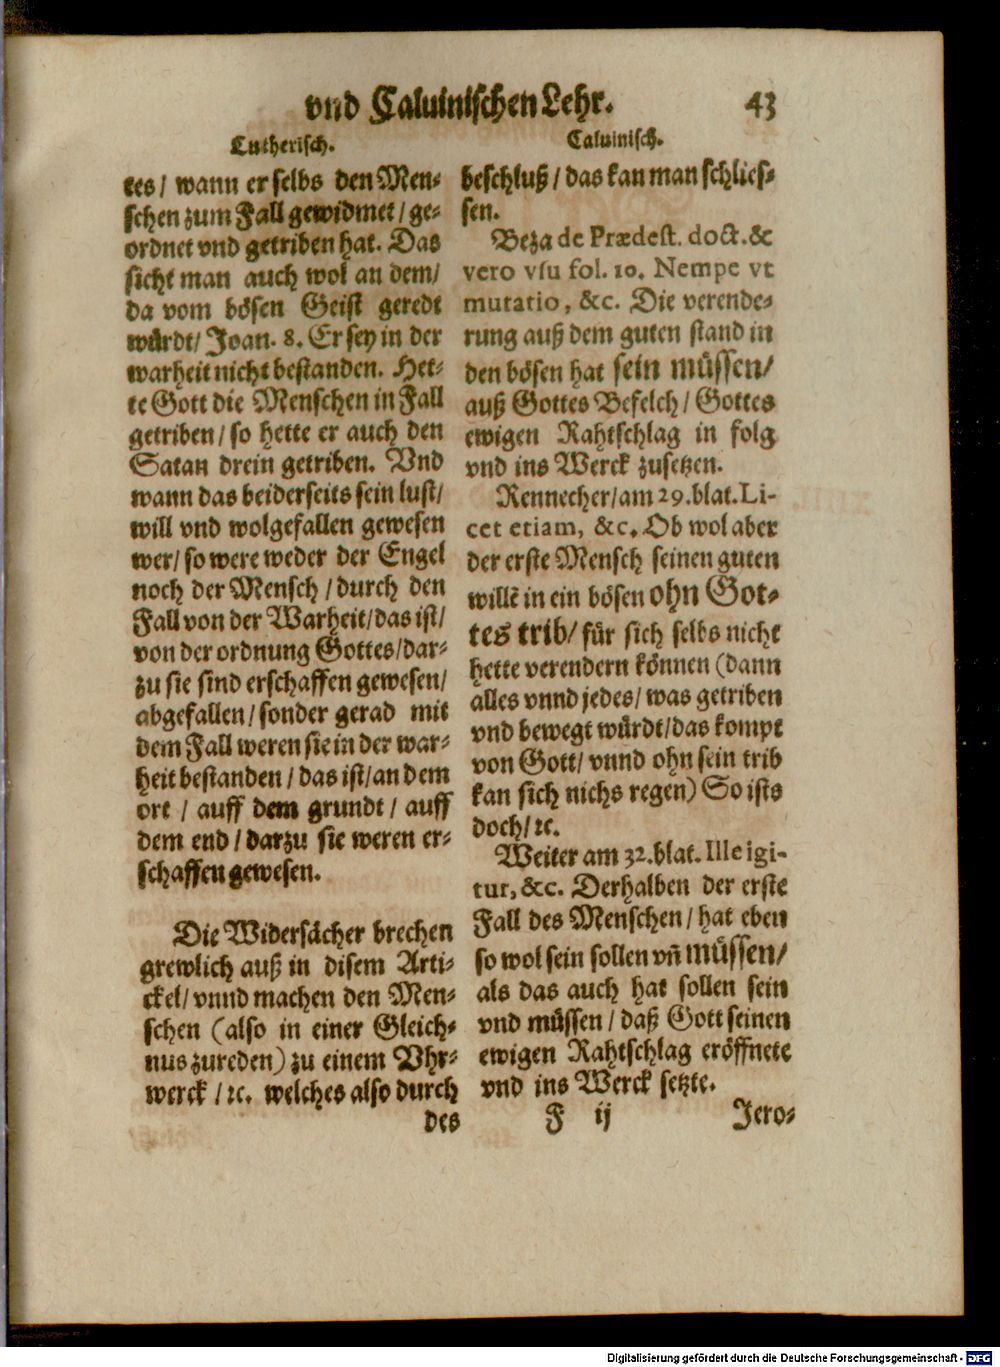 vnd Caluinischen Lehr. 43
Lutherisch.
tes/ wann er selbs den Men-
schen zum Fall gewidmet/ ge-
ordnet vnd getriben hat. Das
sicht man auch wol an dem/
da vom bösen Geist geredt
würdt/ Joan. 8. Er sey in der
warheit nicht bestanden. Het-
te Gott die Menschen in Fall
getriben/ so hette er auch den
Satan drein getriben. Vnd
wann das beiderseits sein lust/
will vnd wolgefallen gewesen
wer/ so were weder der Engel
noch der Mensch/ durch den
Fall von der Warheit/ das ist/
von der ordnung Gottes/ dar-
zu sie sind erschaffen gewesen/
abgefallen/ sonder gerad mit
dem Fall weren sie in der war-
heit bestanden/ das ist/ an dem
ort/ auff dem grundt/ auff
dem end/ darzu sie weren er-
schaffen gewesen.
Die Widersächer brechen
grewlich auß in disem Arti-
ckel/ vnnd machen den Men-
schen (also in einer Gleich-
nus zureden) zu einem Vhr-
werck/ ꝛc. welches also durch
des
Caluinisch.
beschluß/ das kan man schlies-
sen.
Beza de Prædest. doct. &
vero vsu fol. 10. Nempe vt
mutatio, &c. Die verende-
rung auß dem guten stand in
den bösen hat sein müssen/
auß Gottes Befelch/ Gottes
ewigen Rahtschlag in folg
vnd ins Werck zusetzen.
Rennecher/ am 29. blat. Li-
cet etiam, &c. Ob wol aber
der erste Mensch seinen guten
willē in ein bösen ohn Got-
tes trib/ für sich selbs nicht
hette verendern können (dann
alles vnnd jedes/ was getriben
vnd bewegt würdt/ das kompt
von Gott/ vnnd ohn sein trib
kan sich nichs regen) So ists
doch/ ꝛc.
Weiter am 32. blat. Ille igi-
tur, &c. Derhalben der erste
Fall des Menschen/ hat eben
so wol sein sollen vñ müssen/
als das auch hat sollen sein
vnd müssen/ daß Gott seinen
ewigen Rahtschlag eröffnete
vnd ins Werck setzte.
F ij Jero-
Digitalisierung gefördert durch die Deutsche Forschungsgemeinschaft - DFG